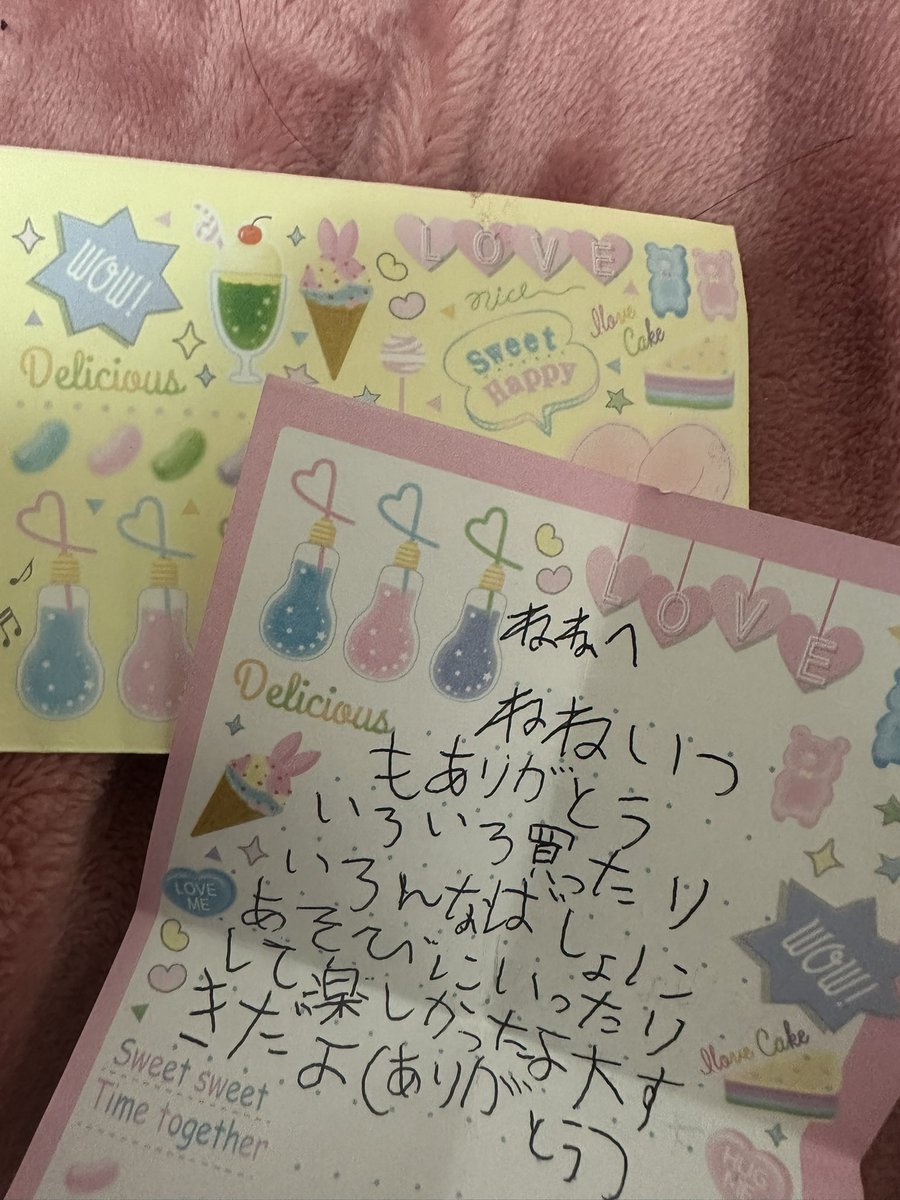 WOW!
Delicious
LOVE
nice
Sweet
Happy
I love
Cake
LOVE
Delicious
ねねへ
ねねいつ
もありがとう
いろいろ買ったり
いろんなばしょに
あそびにいったり
して楽しかったよ大す
きだよ(ありが
とう)
LOVE
ME
WOW!
I love Cake
Sweet sweet
Time together